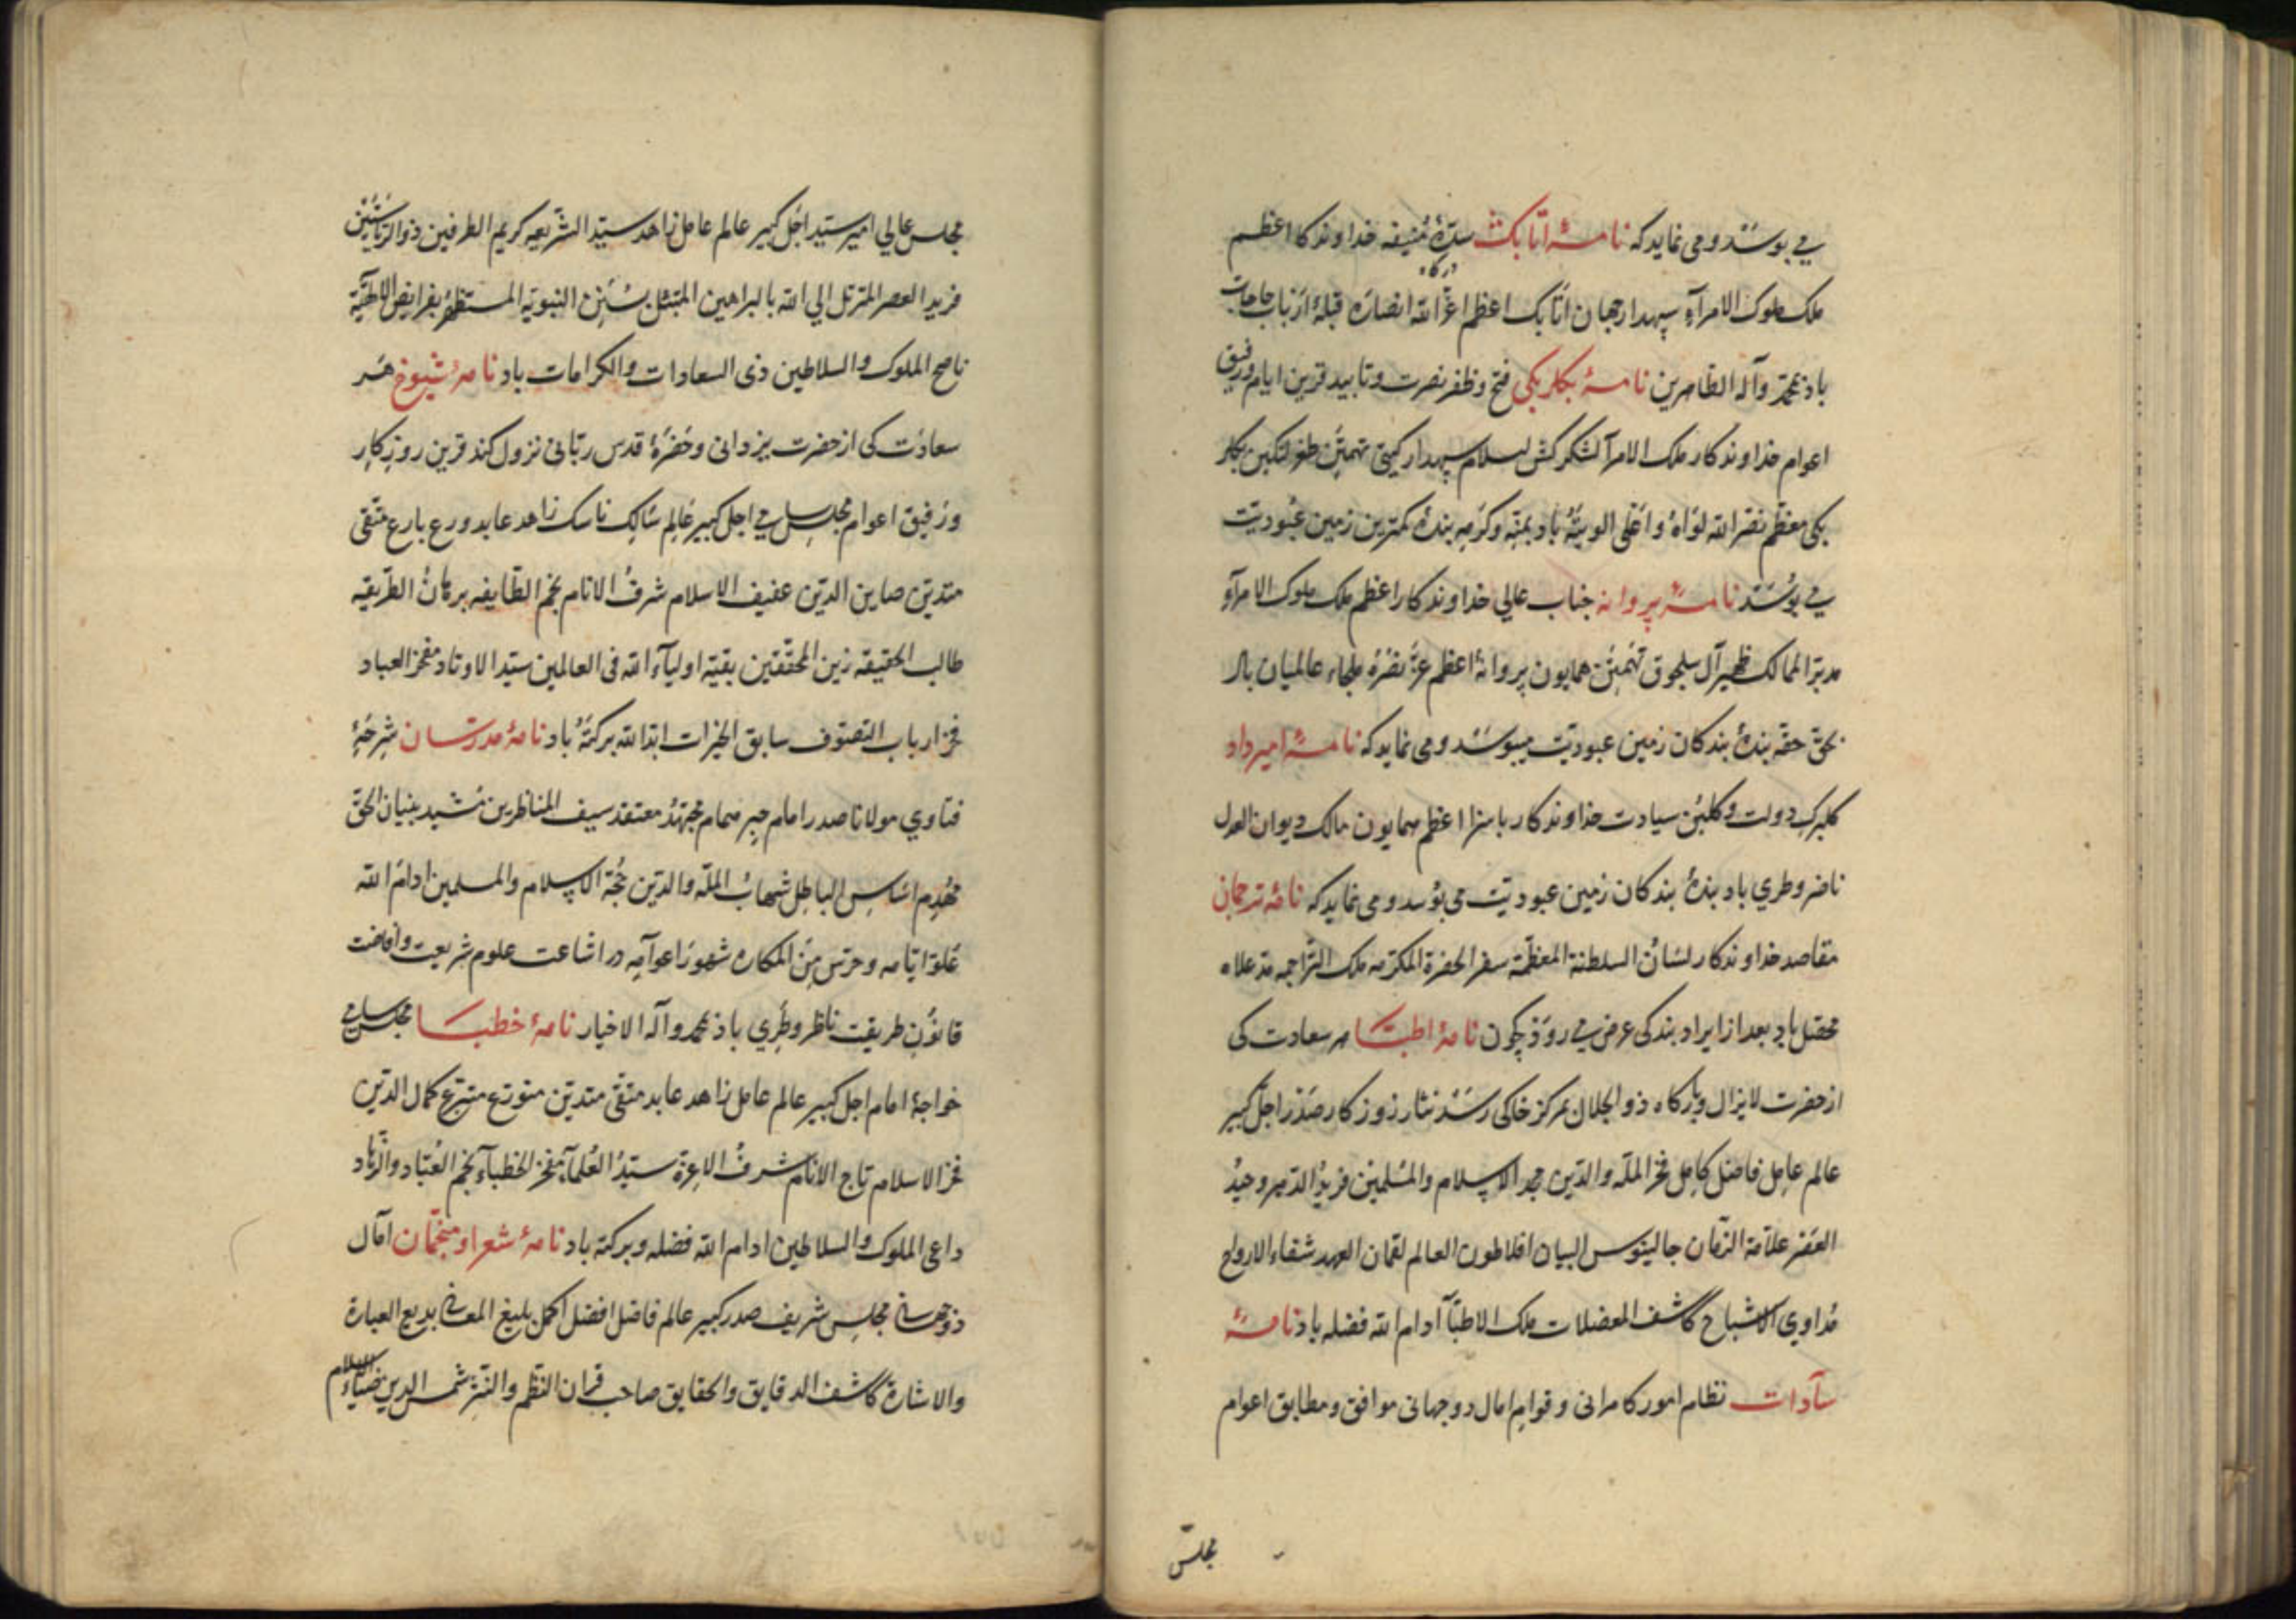 می بوسد و می نماید که نامهٔ اتابک سدّهٔ مُنیفه خداوندکار اعظم
درکاه
ملک ملوک الامرآءِ سپهدار جهان اتابک اعظم اعزّ الله انصارَه قبلهٔ ارباب حاجات
باد بمحمّد وآله الطّاهرین نامهٔ بکلربکی فتح و ظفر نصرت و تایید قرین ایام ورفیق
اعوام خداوندکار ملک الامرآ لشکرکش اسلام سپهدار کیتی تهمتن طغرلتکین بکلر
بکی معظّم نصر الله لواهُ واعلی الویتهُ باد بمنّه وکرَمِه بندهٔ کمترین زمین عبُودیّت
می بوُسَد نامهٔ پروانه جناب عالی خداوندکار اعظم ملک ملوک الامرآءِ
مدبّر الممالک ظهیر آل سلجوق تَهمتَن همایون پروانهٔ اعظم عزّ نصرُه ملجاء عالمیان باد
بحقّ حقّه بندهٔ بندکان زمین عبودیّت میبوسَد و می نماید که نامهٔ امیرداد
کلبرک دولت وکلبُن سیادت خداوندکار بااسزا اعظم همایون مالک دیوان العدل
ناضر وطری باد بندهٔ بندکان زمین عبودیّت می بوُسد و می نماید که نامهٔ ترجمان
مقاصد خداوندکار لسانُ السلطنة المعظّمة سفر الحضرة المکرّمه ملک التّراجمه مدّ علاه
محصّل باد بعد از ایراد بندکی عرض می روَذ چون نامهٔ اطبّا هر سعادت کی
از حضرت لایزال وبارکاه ذو الجلال بمرکز خاکی رسَد نثار روزکار صَدر اجلّ کبیر
عالم عامِل فاضل کامِل فخر الملّه والدّین مجد الاسلام والمُسلمین فریدُ الدّهر وحیدُ
العَصر علاّمة الزّمان جالینوس البیان افلاطون العالم لقمان العهد شفاء الارواح
مُداوی الاشباح کاشف المعضلات ملک الاطبّآ ادام الله فضله باد نامهٔ
سآدات نظام امور کامرانی و قوام امال دوجهانی موافق و مطابق اعوام
مجلس
مجلس عالی امیر سیّد اجلّ کبیر عالم عامل زاهد سیّد الشّریعه کریم الطرفین ذو الریاستَین
فرید العصر المتزّل الی الله بالبراهین المتمثّل بسُنن النبویّه المستظهرُ بفرایض الالهیّة
ناصح الملوک والسلاطین ذی السعادات والکرامات باد نامهٔ شیوخ هَر
سعادَت کی از حضرت یزدانی وحَضرَهٔ قدس ربّانی نزول کند قرین روزکار
ورفیق اعوام مجلس سامی اجلّ کبیر عالِم سَالِک ناسک زاهد عابد ورع بارع متّقی
متدیّن صاین الدّین عفیف الاسلام شرفُ الانام نجم الطّایفه برهانُ الطّریقه
طالب الحقیقه زین المحقّقین بقیّة اولیآء الله فی العالمین سیّد الاوتاد مفخر العباد
فخر ارباب التصوّف سابق الخیرات ابّد الله برکتَهُ باد نامهٔ مدرّسان شرحهٔ
فتاوی مولانا صدر امام حبر همام مجتهدُ معتقد سیف المناظرین مُشید بنیان الحقّ
مُهدِم اسَاسِ الباطِل شهابُ الملّه والدّین حُجّة الاسلام والمسلمین ادام الله
عُلوَّ ایّامه وحرَس مِنَ المکاره شهورَ اعوامِه در اشاعت علوم شریعت وافاضت
قانوُنِ طریقت ناظر وطَری باد بمحمّد وآله الاخیار نامهٔ خطبَا مجلس سامی
خواجهٔ امام اجلّ کبیر عالم عامل زاهد عابد متّقی متدیّن متورّع متبرّع کمال الدّین
فخر الاسلام تاج الانام شرفُ الاعِزة سیّدُ العُلمآء مفخر الخطبآء نجم العُبّاد والزّهاد
داعی الملوک والسلاطین ادام الله فضله وبرکته باد نامهٔ شعرا و منجّمان امآل
دوجهانی مجلِس شریف صدر کبیر عالم فاضل افضل اکمل بلیغ المعانی بدیع العبارة
والاشارة کاشف الدقایق والحقایق صاحب قران النّظم والنّثر شمس الدین ضیاءُ الاسلام